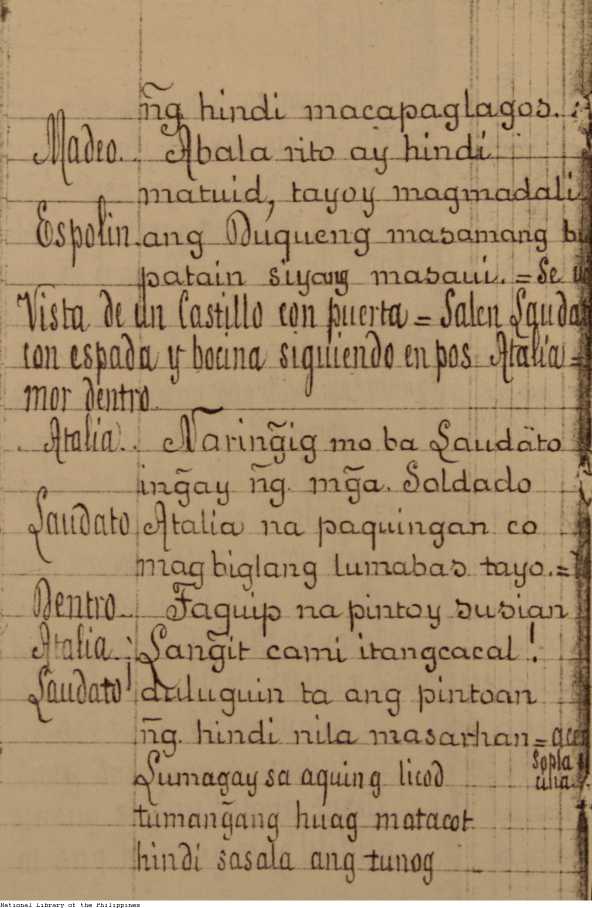 n̄g hindi macapaglagos.
Madeo. Abala rito ay hindi
matuid, tayoy magmadali
Espolin. ang Duqueng masamang
patain siyang masaui. = Se
Vista de un Castillo con puerta = Salen Laudato
con espada y bocina siguiendo en pos Atalia =
mor dentro.
Atalia. Naring̃ig mo ba Laudato
ing̃ay n̄g. mg̃a. Soldado
Laudato Atalia na paquingan co
magbiglang lumabas tayo. =
Dentro. Taquip na pintoy susian
Atalia. Lang̃it cami itangcacal!
Laudato! duluguin ta ang pintoan
n̄g. hindi nila masarhan =
Sopla
Lumagay sa aquing licod
tumang̃ang huag matacot
hindi sasala ang tunog
National Library of the Philippines